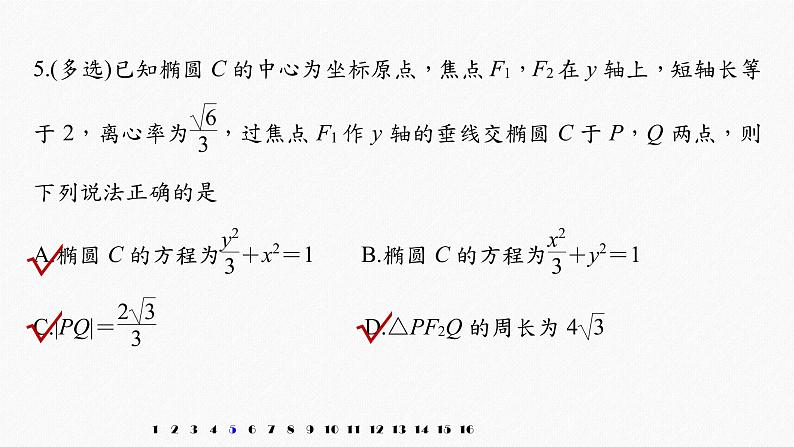 5.(多选)已知椭圆 C 的中心为坐标原点，焦点 F₁，F₂ 在 y 轴上，短轴长等
于 2，离心率为√6/3，过焦点 F₁ 作 y 轴的垂线交椭圆 C 于 P，Q 两点，则
下列说法正确的是
A.椭圆 C 的方程为y²/3+x²=1 B.椭圆 C 的方程为x²/3+y²=1
C.|PQ|=2√3/3 D.△PF₂Q 的周长为 4√3
1 2 3 4 5 6 7 8 9 10 11 12 13 14 15 16